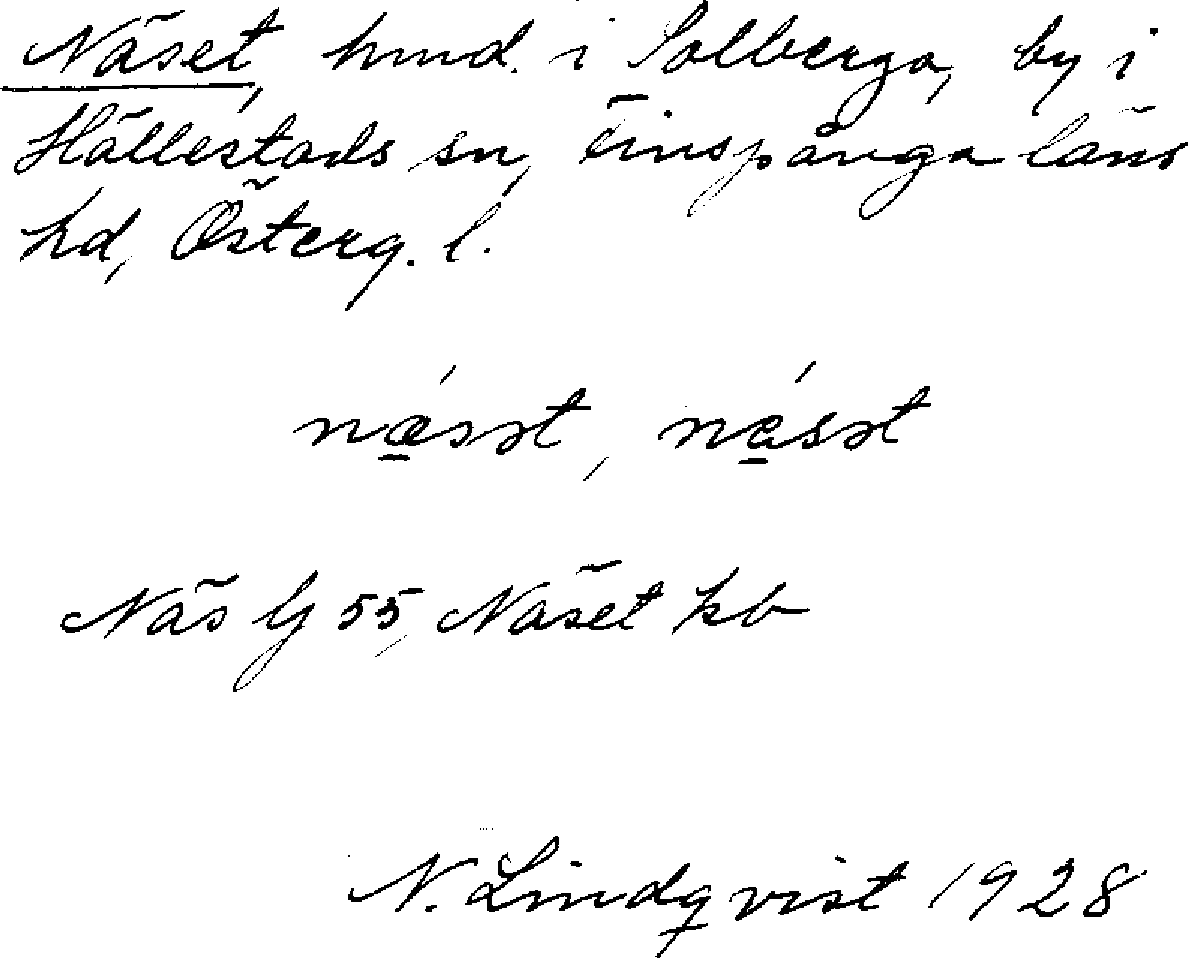 Näset, hmd. i Solberga, by i
Hällestads sn, Finspånga läns
hd, Österg. l.
nǽ̠sət, né̠sət
Näs Gj 55, Näset kb
N. Lindqvist 1928